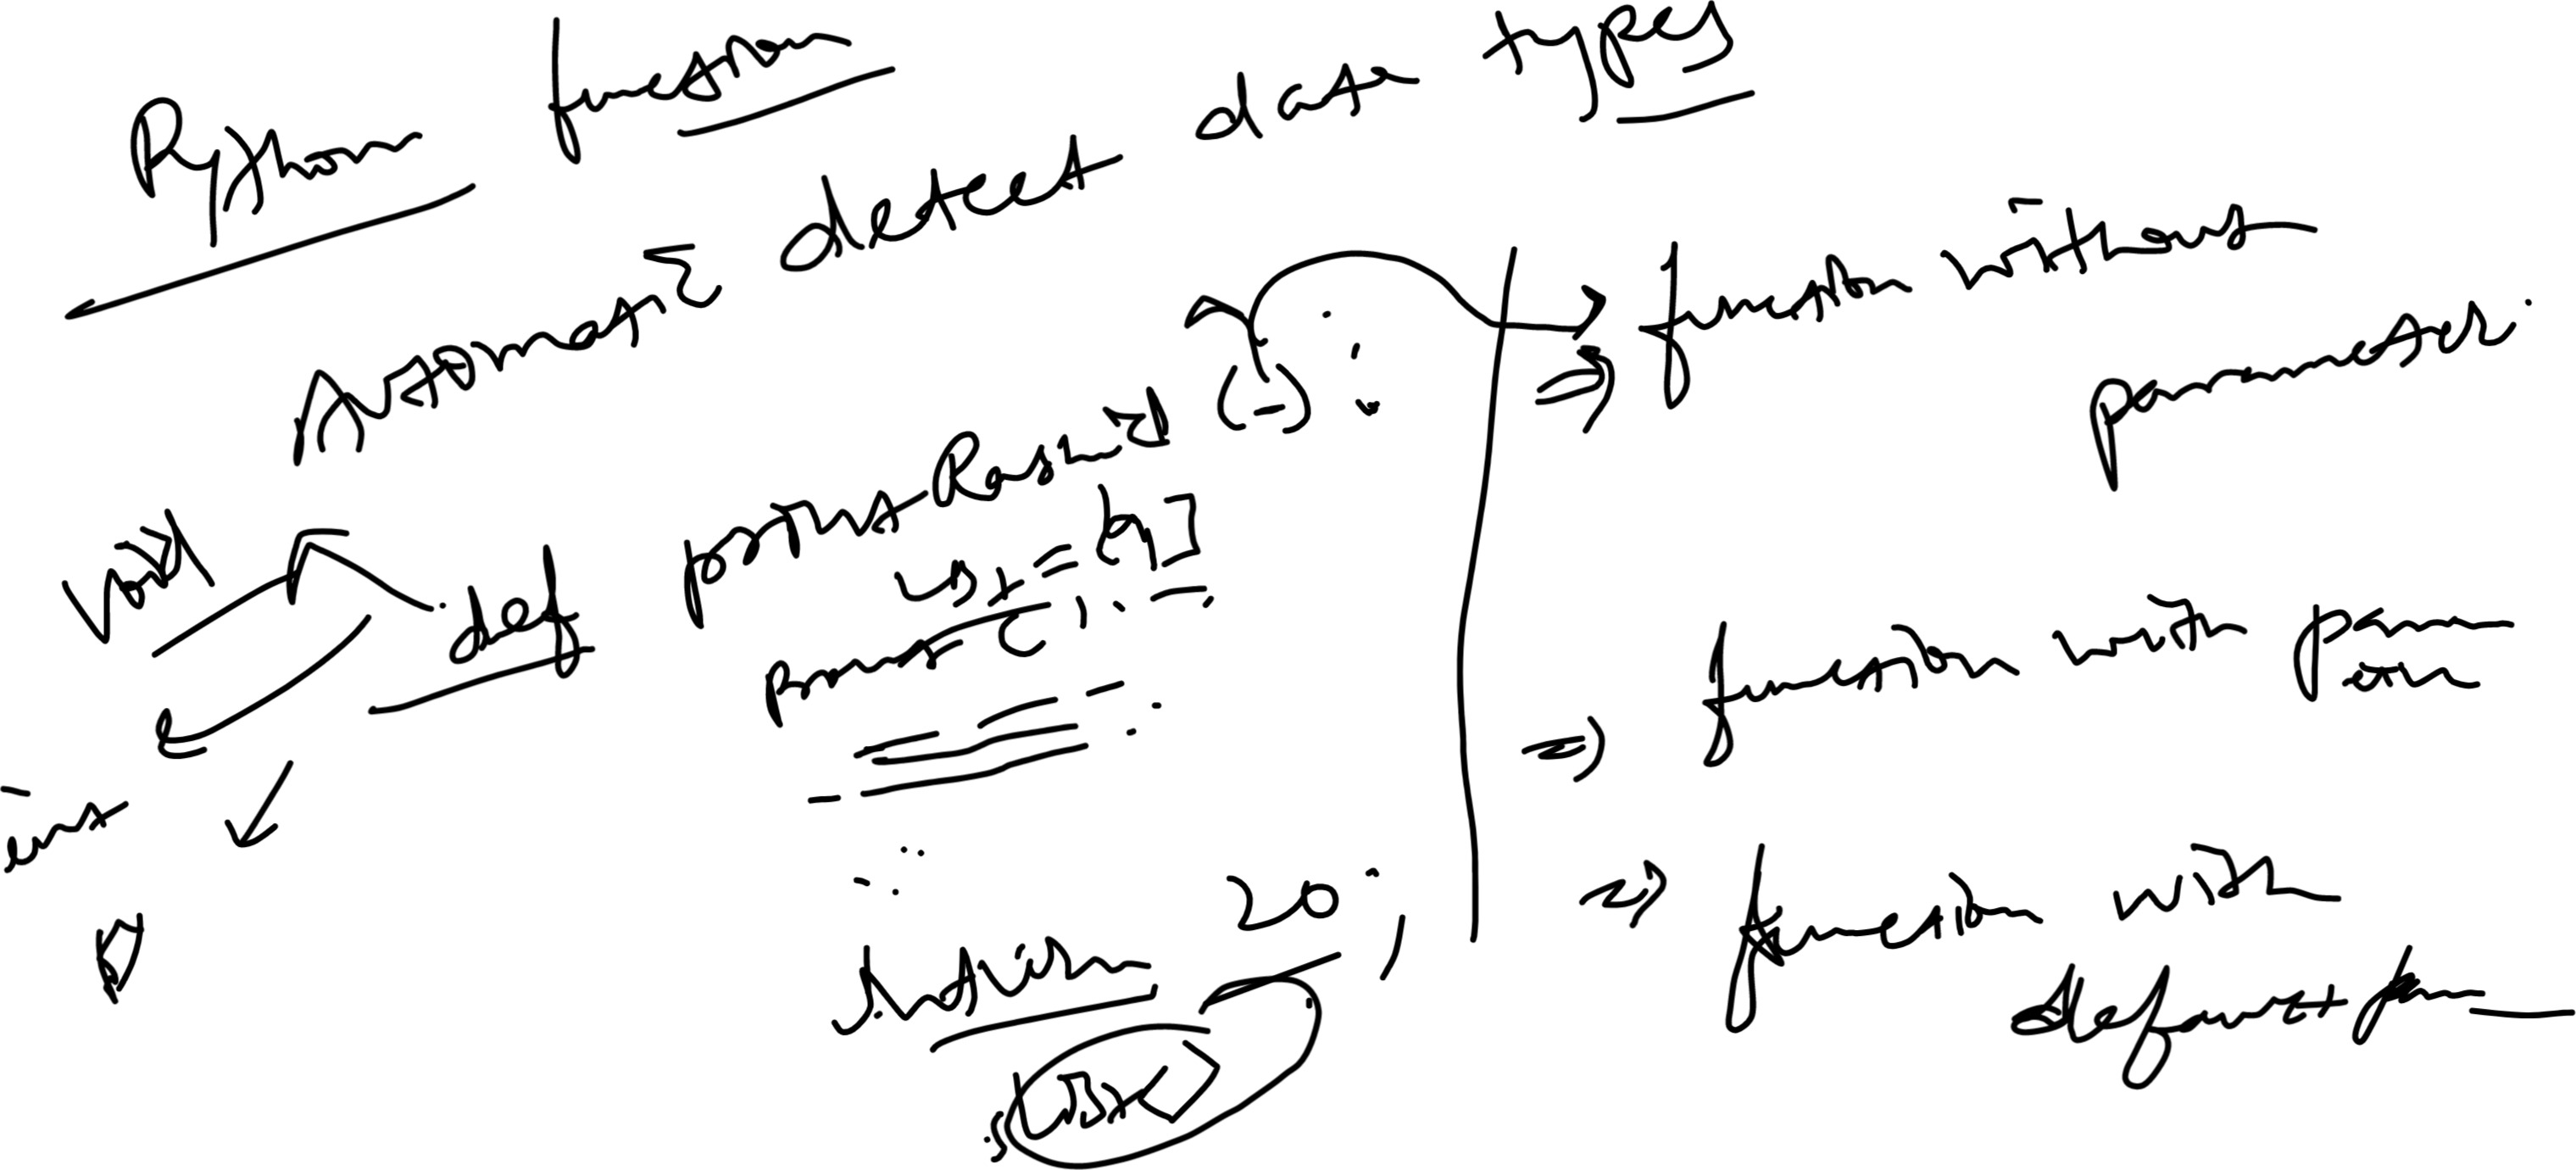 Python function
Automatic detect data types
void
def print-Rashid (-) :
list = [9]
print ("
int
return 20 ;
list<>
⇒ function without
parameter.
⇒ function with para
⇒ function with
default